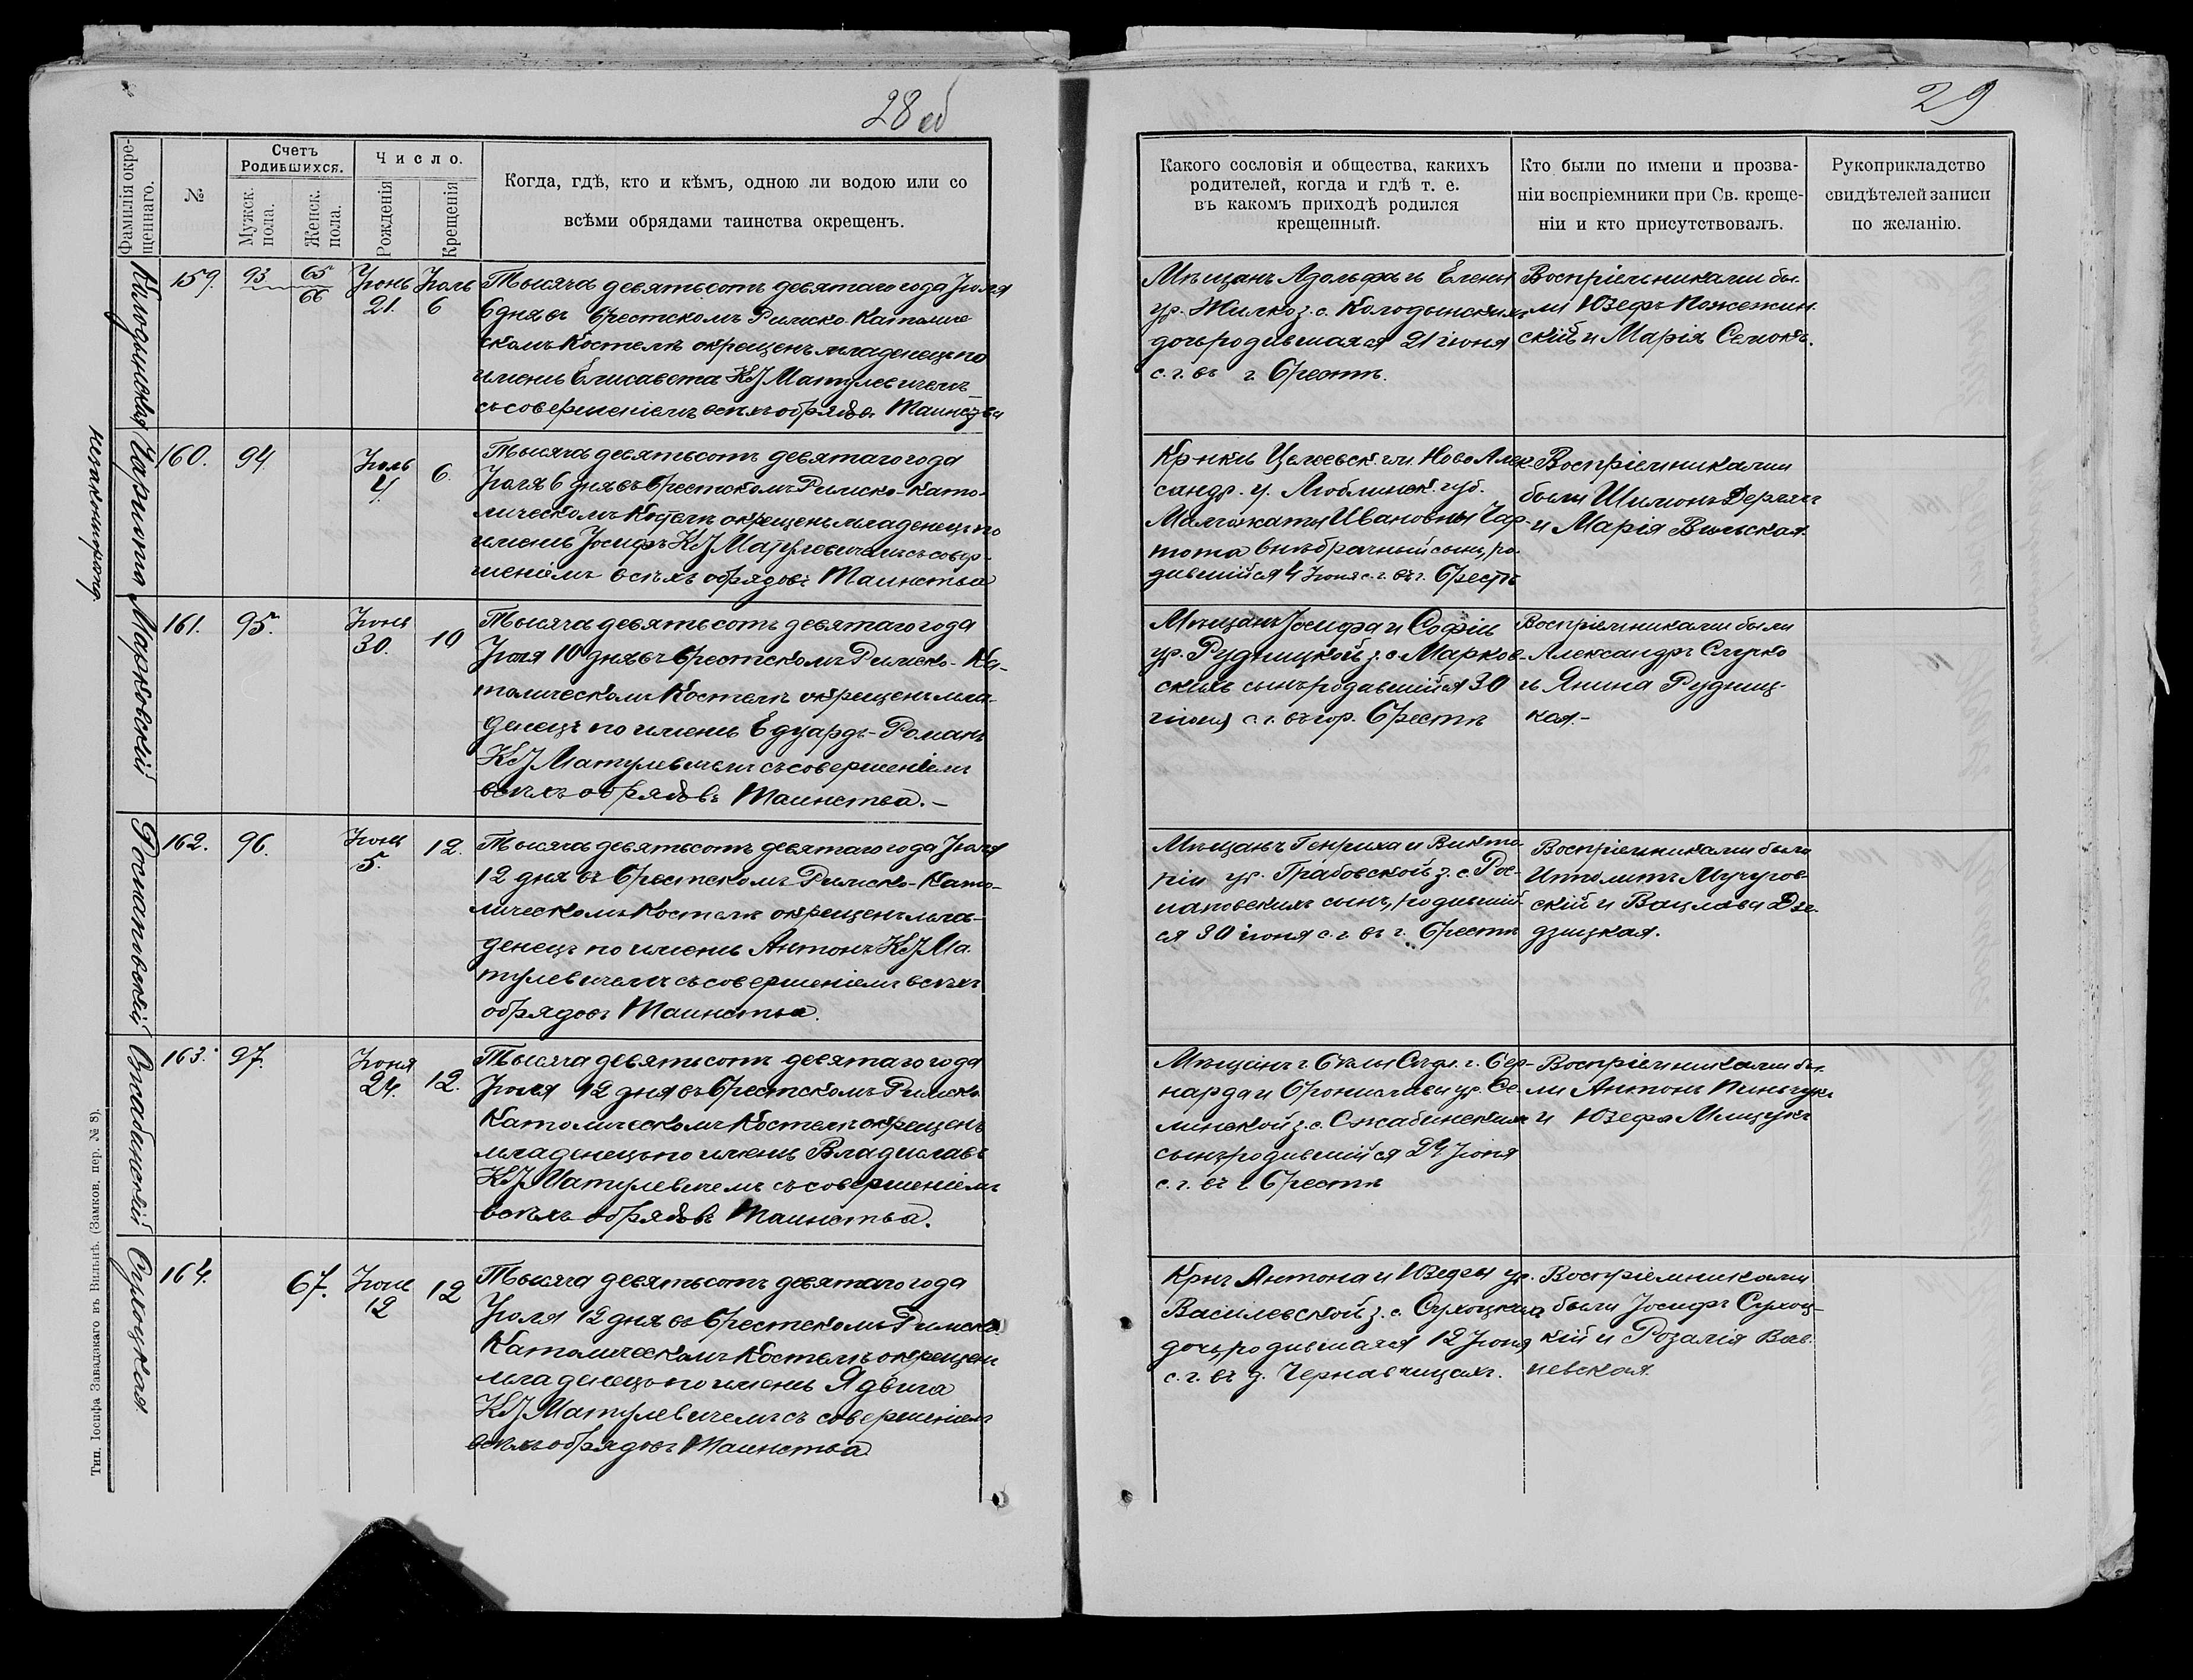 28 об
Фамилія окре-
щеннаго.
№
Счетъ
Родившихся.
Мужск.
пола.
Женск.
пола.
Число.
Рожденія
Крещенія
Когда, гдѣ, кто и кѣмъ, одною ли водою или со
всѣми обрядами таинства окрещенъ.
Колодынская
159.
93
65
66
Іюнь
21.
Іюль
6
Тысяча девятьсотъ девятаго года Іюля
6 дня въ Брестскомъ Римско-Католиче
скомъ Костелѣ окрещенъ младенецъ по
имени Елисавета КѢ Матулевичемъ
съ совершеніемъ всѣхъ обрядовъ Таинства
незаконнорожд.
Чартота
160.
94
Іюль
4
6.
Тысяча девятьсотъ девятаго года
Іюля 6 дня въ Брестскомъ Римско-Като-
лическомъ Костелѣ окрещенъ младенецъ по
имени Іосифъ Матулевичемъ съ совер-
шеніемъ всѣхъ обрядовъ Таинства
Марковскій
161.
95.
Іюнь
30.
10
Тысяча девятьсотъ девятаго года
Іюля 10 дня въ Брестскомъ Римско-Ка-
толическомъ Костелѣ окрещенъ мла-
денецъ по имени Едуардъ-Романъ
Матулевичемъ съ совершеніемъ
всѣхъ обрядовъ Таинства.-
Роснаповскій
162.
96.
Іюнь
5.
12.
Тысяча девятьсотъ девятаго года Іюля
12 дня въ Брестскомъ Римско-Като-
лическомъ Костелѣ окрещенъ мла-
денецъ по имени Антонъ Ма
тулевичемъ съ совершеніемъ всѣхъ
обрядовъ Таинства.
163.
97.
Іюня
24.
12.
Тысяча девятьсотъ девятаго года
Іюля 12 дня въ Брестскомъ Римско
Католическомъ Костелѣ окрещенъ
младенецъ по имени Владиславъ
Матулевичемъ съ совершеніемъ
всѣхъ обрядовъ Таинства.
Сухоцкая.
164.
67.
Іюль
12
12
Тысяча девятьсотъ девятаго года
Іюля 12 дня въ Брестскомъ Римско
Католическомъ Костелѣ окрещенъ
младенецъ по имени Ядвига
Матулевичемъ съ совершеніемъ
всѣхъ обрядовъ Таинства
Тип. Іосифа Завадзкаго въ Вильнѣ. (Замков. пер. № 8).
29
Какого сословія и общества, какихъ
родителей, когда и гдѣ т. е.
въ какомъ приходѣ родился
крещенный.
Кто были по имени и прозва-
ніи воспріемники при Св. креще-
ніи и кто присутствовалъ.
Рукоприкладство
свидѣтелей записи
по желанію.
Мѣщанъ Адольфа и Елены
ур. Жилко з. с. Колодынскихъ
дочь родившаяся 21 іюня
с. г. въ г. Брестѣ.
Воспріемниками бы-
ли Юзефъ Пожежин-
скій и Марія Семонъ.
Кр-нки Целеевск. гм. Ново Алек-
сандр. у. Люблинск. губ.
Малгожаты Ивановны Чар-
тота внѣбрачный сынъ, ро-
дившійся 4 Іюля с. г. въ г. Брестѣ
Воспріемниками
были Шимонъ
и Марія Вильская.
Мѣщанъ Іосифа и Софіи
ур. Рудницкой з. с. Марков-
скихъ сынъ родившійся 30
іюня с. г. въ гор. Брестѣ
Воспріемниками были
Александръ Случко
и Янина Рудниц-
кая.-
Мѣщанъ Генриха и Викто
ріи ур. Грабовской з. с. Рос-
наповскихъ сынъ, родивший-
ся 30 іюня с. г. въ г. Брестѣ
Воспріемниками были
Ипполитъ
скій и Вацлава Дзе-
дзицкая.
Мѣщанъ г. Бѣлы Сѣдл. г. Бер-
нарда и Брониславы ур. Се-
линской з. с.
сынъ родившійся 24 Іюня
с. г. въ г. Брестѣ
Воспріемниками бы-
ли Антонъ Пинчукъ
и Юзефа Мищукъ
Крнъ Антона и Юзефы ур.
Василевской з. с. Сухоцкихъ
дочь, родившаяся 12 Іюня
с. г. въ д. Чернавчицахъ.
Воспріемниками
были Іосифъ Сухоц-
кій и Розалія Вас.
невская.